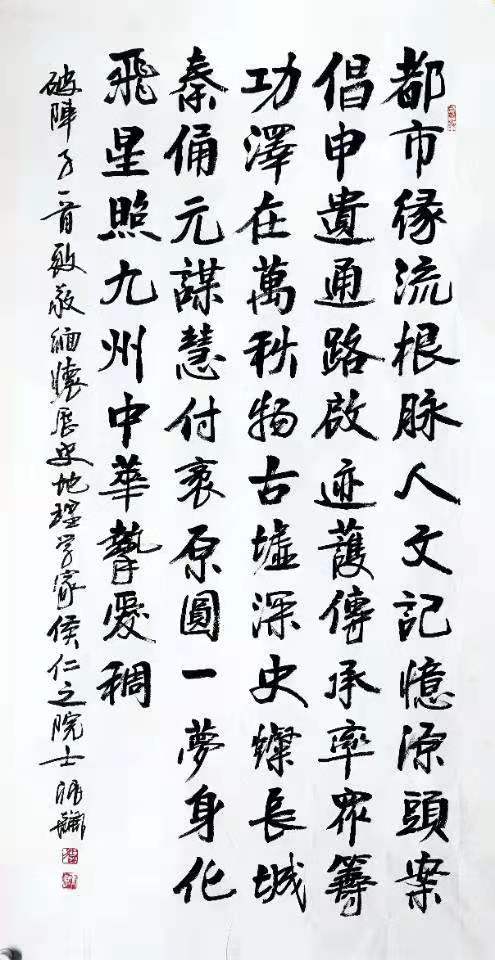 都市緣流根脉人文記憶源頭案
倡申遺通路啟迹護傳承率眾籌
功澤在萬秋物古墟深史燦長城
秦俑元謀慧付衷原圓一夢身化
飛星照九州中華摯愛稠
破陣子一首致敬緬懷歷史地理学家侯仁之院士